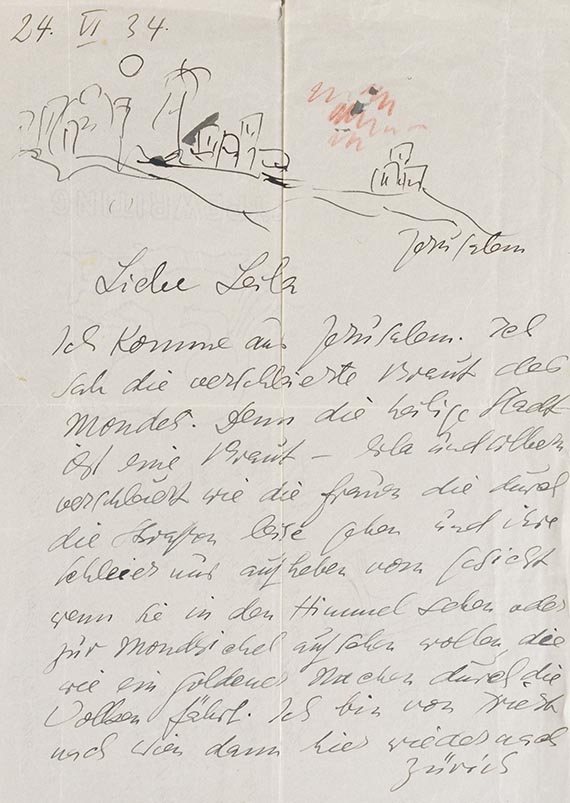 24. VI 34.
Jerusalem
Liebe Leila
Ich komme aus Jerusalem. Ich
sah die verschleierte Braut des
Mondes. Denn die heilige Stadt
ist eine Braut – lila und silbern
verschleiert wie die Frauen die durch
die Straßen leise gehen und ihre
Schleier nur aufheben vom Gesicht
wenn sie in den Himmel sehen oder
zur Mondsichel aufsehen wollen, die
wie ein goldener Nachen durch die
Wolken fährt. Ich bin von Triest
nach Wien dann hier wieder nach
Zürich